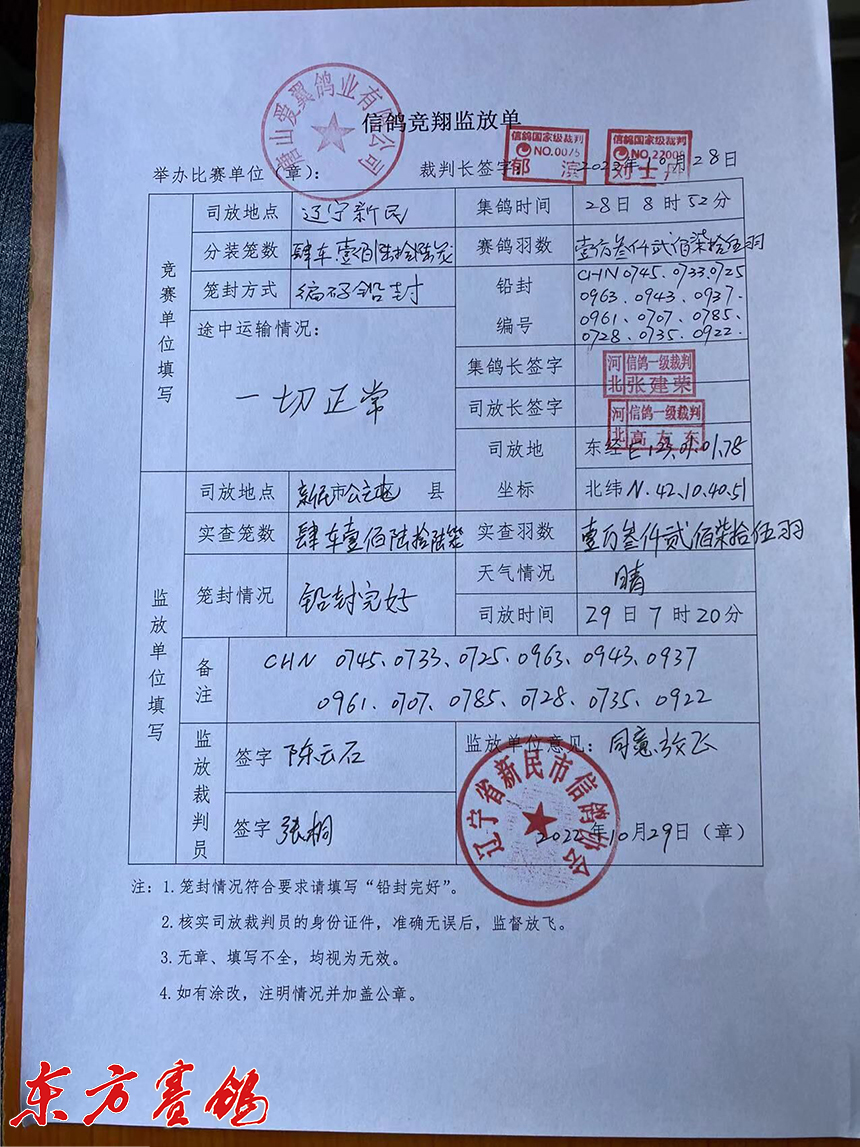 唐山爱翼鸽业有限公司
信鸽竞翔监放单
信鸽国家级裁判
NO.0075
郁 滨
信鸽国家级裁判
NO.22009
刘士
举办比赛单位(章): 裁判长签字 2022年10月28日
竞赛单位填写
司放地点 辽宁新民 集鸽时间 28日8时52分
分装笼数 肆车壹佰陆拾陆笼 赛鸽羽数 壹万叁仟贰佰柒拾伍羽
笼封方式 编码铅封 铅封编号 CHN0745、0733、0725
0963、0943、0937、
0961、0707、0785、
0728、0735、0922、
途中运输情况:
一切正常
集鸽长签字 河北 信鸽一级裁判 张建荣
司放长签字 河北 信鸽一级裁判 高友东
司放地坐标 东经E.123.01.01.78
北纬N.42.10.40.51
监放单位填写
司放地点 新民市公主屯 县
实查笼数 肆车壹佰陆拾陆笼 实查羽数 壹万叁仟贰佰柒拾伍羽
笼封情况 铅封完好 天气情况 晴
司放时间 29日7时20分
备注 CHN 0745、0733、0725、0963、0943、0937
0961、0707、0785、0728、0735、0922
监放裁判员 签字 陈云石 监放单位意见:同意放飞
签字 张桐 2022年10月29日(章)
辽宁省新民市信鸽协会
注:1.笼封情况符合要求请填写“铅封完好”。
2.核实司放裁判员的身份证件,准确无误后,监督放飞。
3.无章、填写不全,均视为无效。
4.如有涂改,注明情况并加盖公章。
东方赛鸽